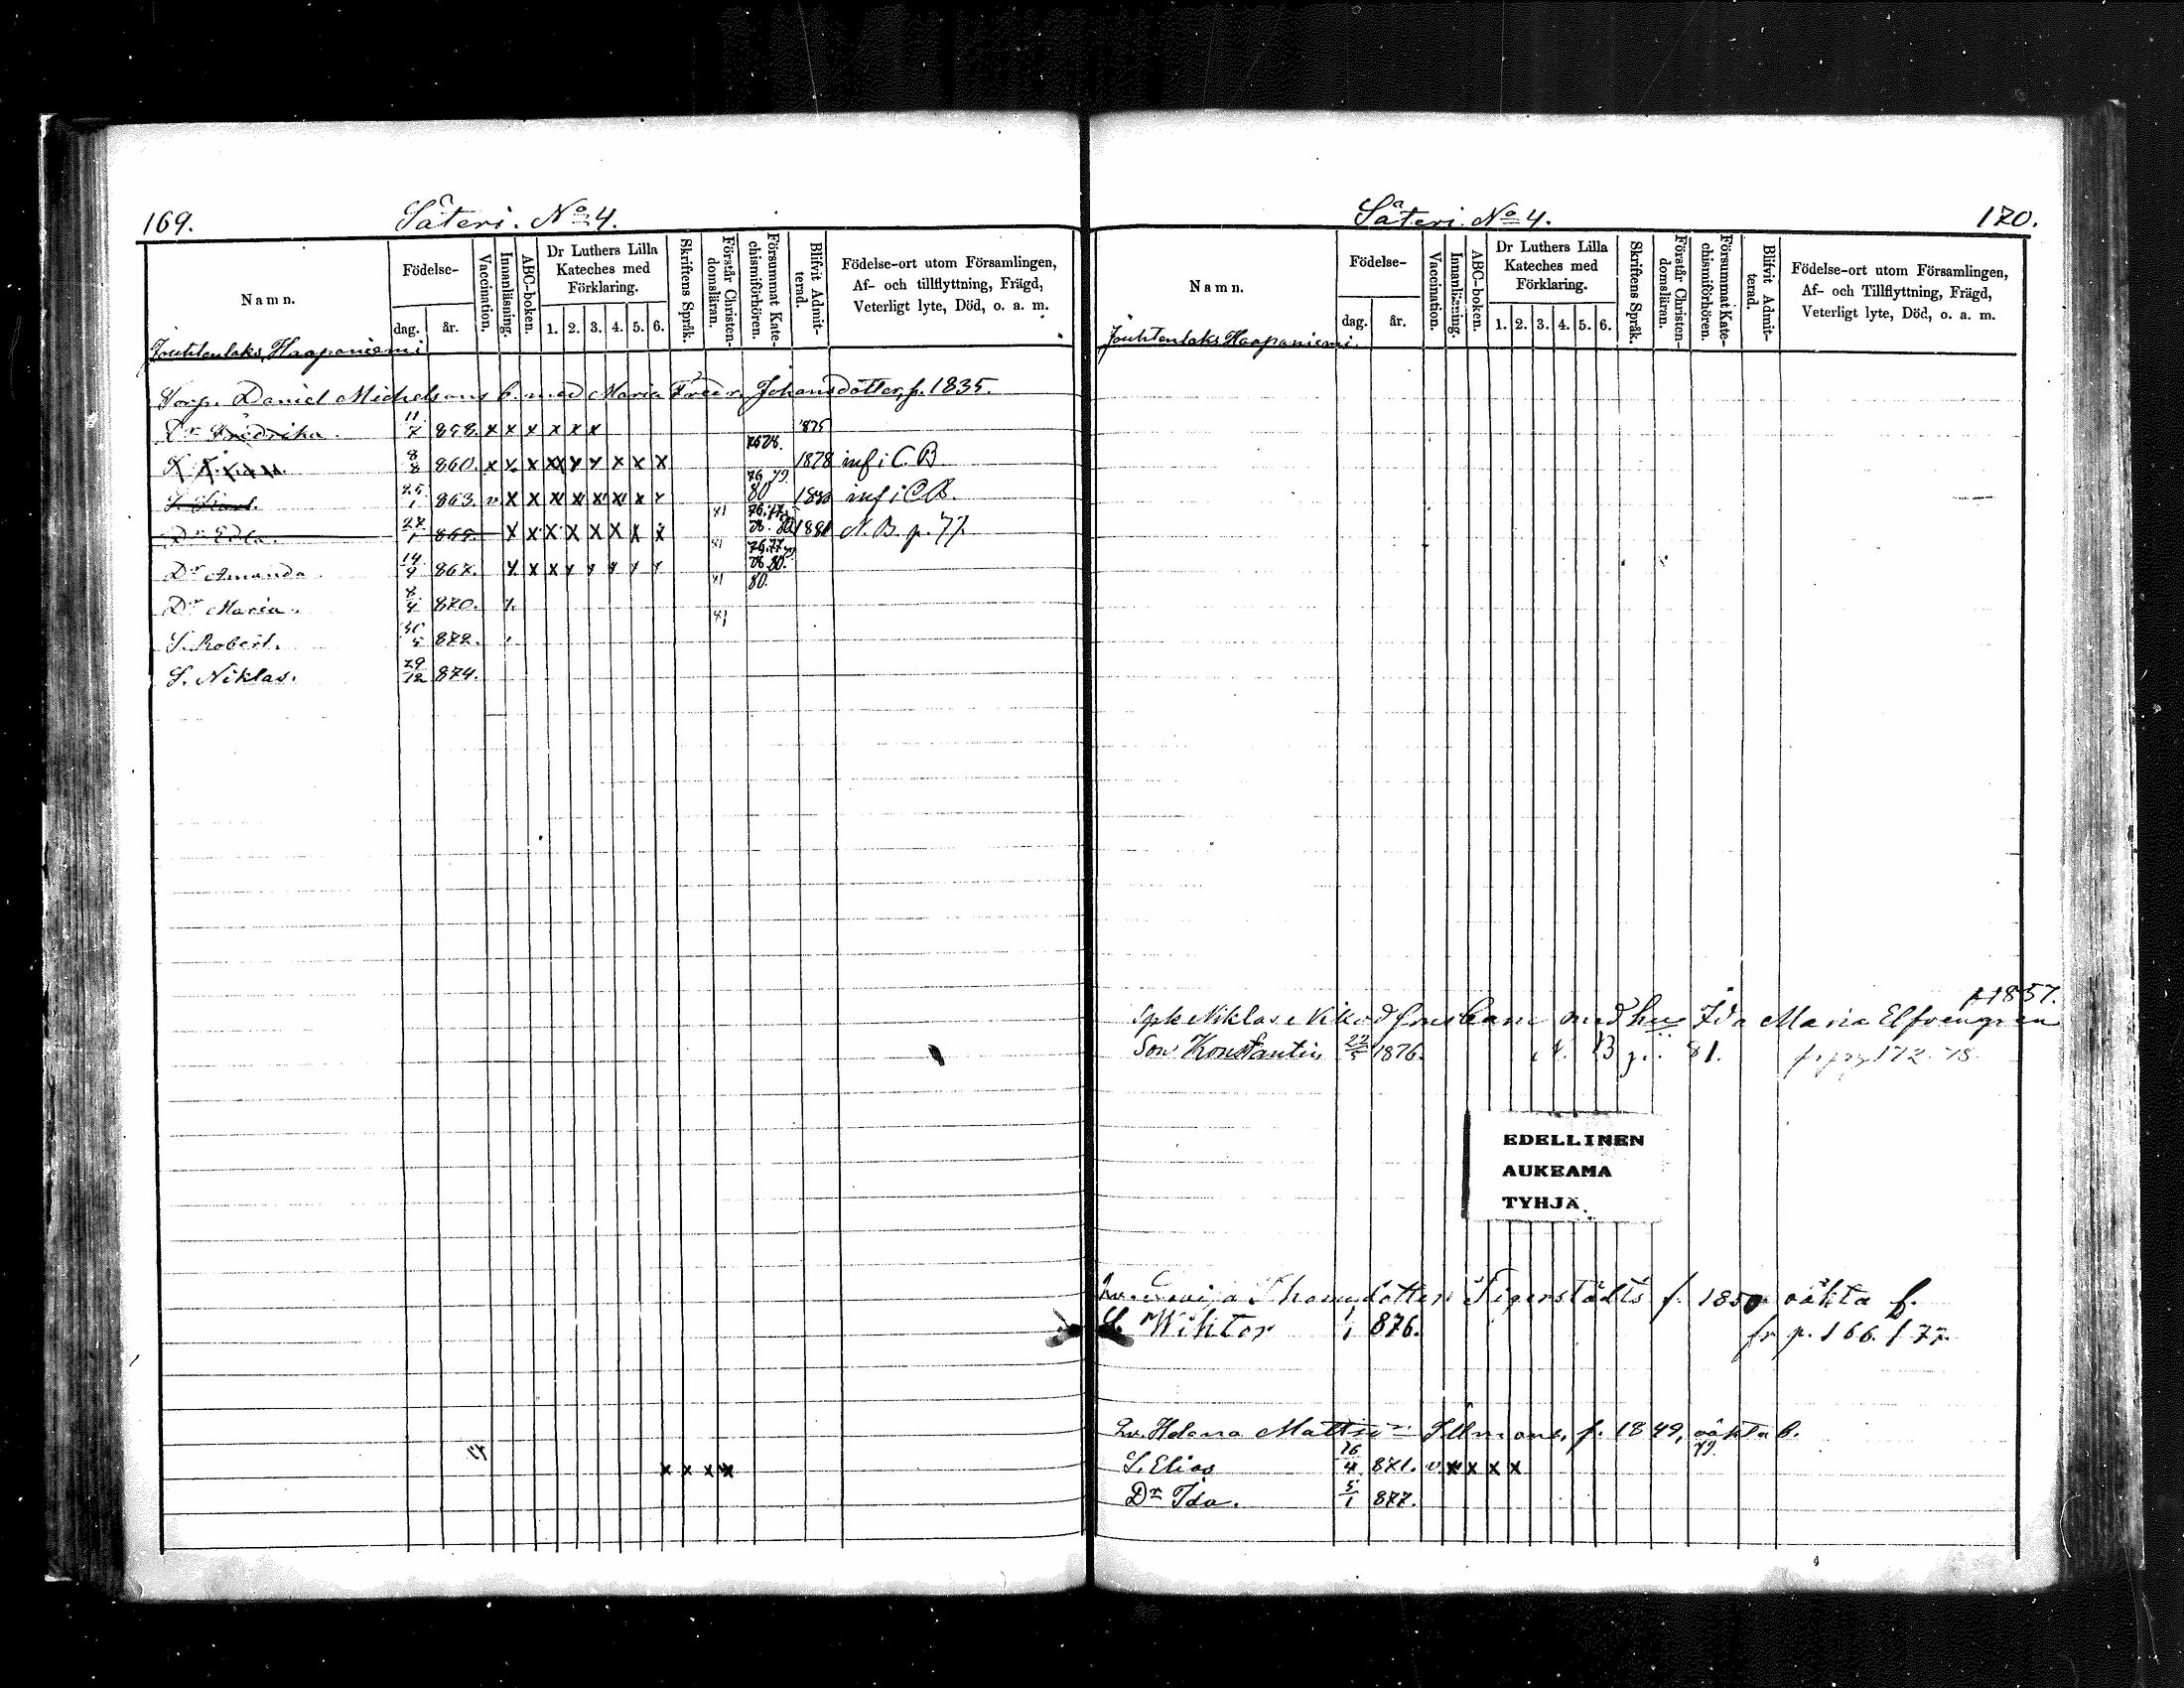 169.
Säteri. No 4.
Namn.
Födelse-
dag.
år.
Vaccination.
Innanläsning.
ABC-boken.
Dr Luthers Lilla
Kateches med
Förklaring.
1. 2. 3. 4. 5. 6.
Skriftens Språk.
Förstår Christen-
domsläran.
Försummat Kate-
chismiförhören.
Blifvit Admit-
terad.
Födelse-ort utom Församlingen,
Af- och tillflyttning, Frägd,
Veterligt lyte, Död, o. a. m.
Jouhtenlaks, Haapaniemi
Torp. Daniel Michelsons b. med Maria Fredr. Johansdotter, f. 1835.
Dr Fredrika. 11/7 858. x x x x x x 1875
8/8 860. x x x xx x x x x x 1878 inf i C. B
S. Karl. 25/1 863. v x x x x x x x x 76 79. 80 1880 inf i C B.
Dr Edla. 27/1 865. x x x x x x x x 1881 N. B. p. 77.
Dr Amanda. 14/9 867. x x x x x x x x 81 76.77 79 78 80.
Dr Maria. 8/4 870. x 81 80.
S. Robert. 30/5 872. 81
S. Niklas. 29/12 874.
x x x x
Säteri. No 4.
170.
Namn.
Födelse-
dag.
år.
Vaccination.
Innanläsning.
ABC-boken.
Dr Luthers Lilla
Kateches med
Förklaring.
1. 2. 3. 4. 5. 6.
Skriftens Språk.
Förstår Christen-
domsläran.
Försummat Kate-
chismiförhören.
Blifvit Admit-
terad.
Födelse-ort utom Församlingen,
Af- och Tillflyttning, Frägd,
Veterligt lyte, Död, o. a. m.
Jouhtenlaks Haapaniemi.
f. 1857.
Niklas barn med hu Ida Maria Elfvengren
Son Konstantin 22/5 1876. N. B p. 81. fr pag 172. 78.
EDELLINEN
AUKEAMA
TYHJÄ.
Thomsdotter Tigerstedts f. 1850 oäkta b.
S. Wiktor 1/1 876. fr p. 166. / 77.
Qv. Helena Mattsdr Illmans, f. 1849, oäkta b.
S. Elias 26/4 871. v x x x x 79.
Dr Ida. 5/1 877.